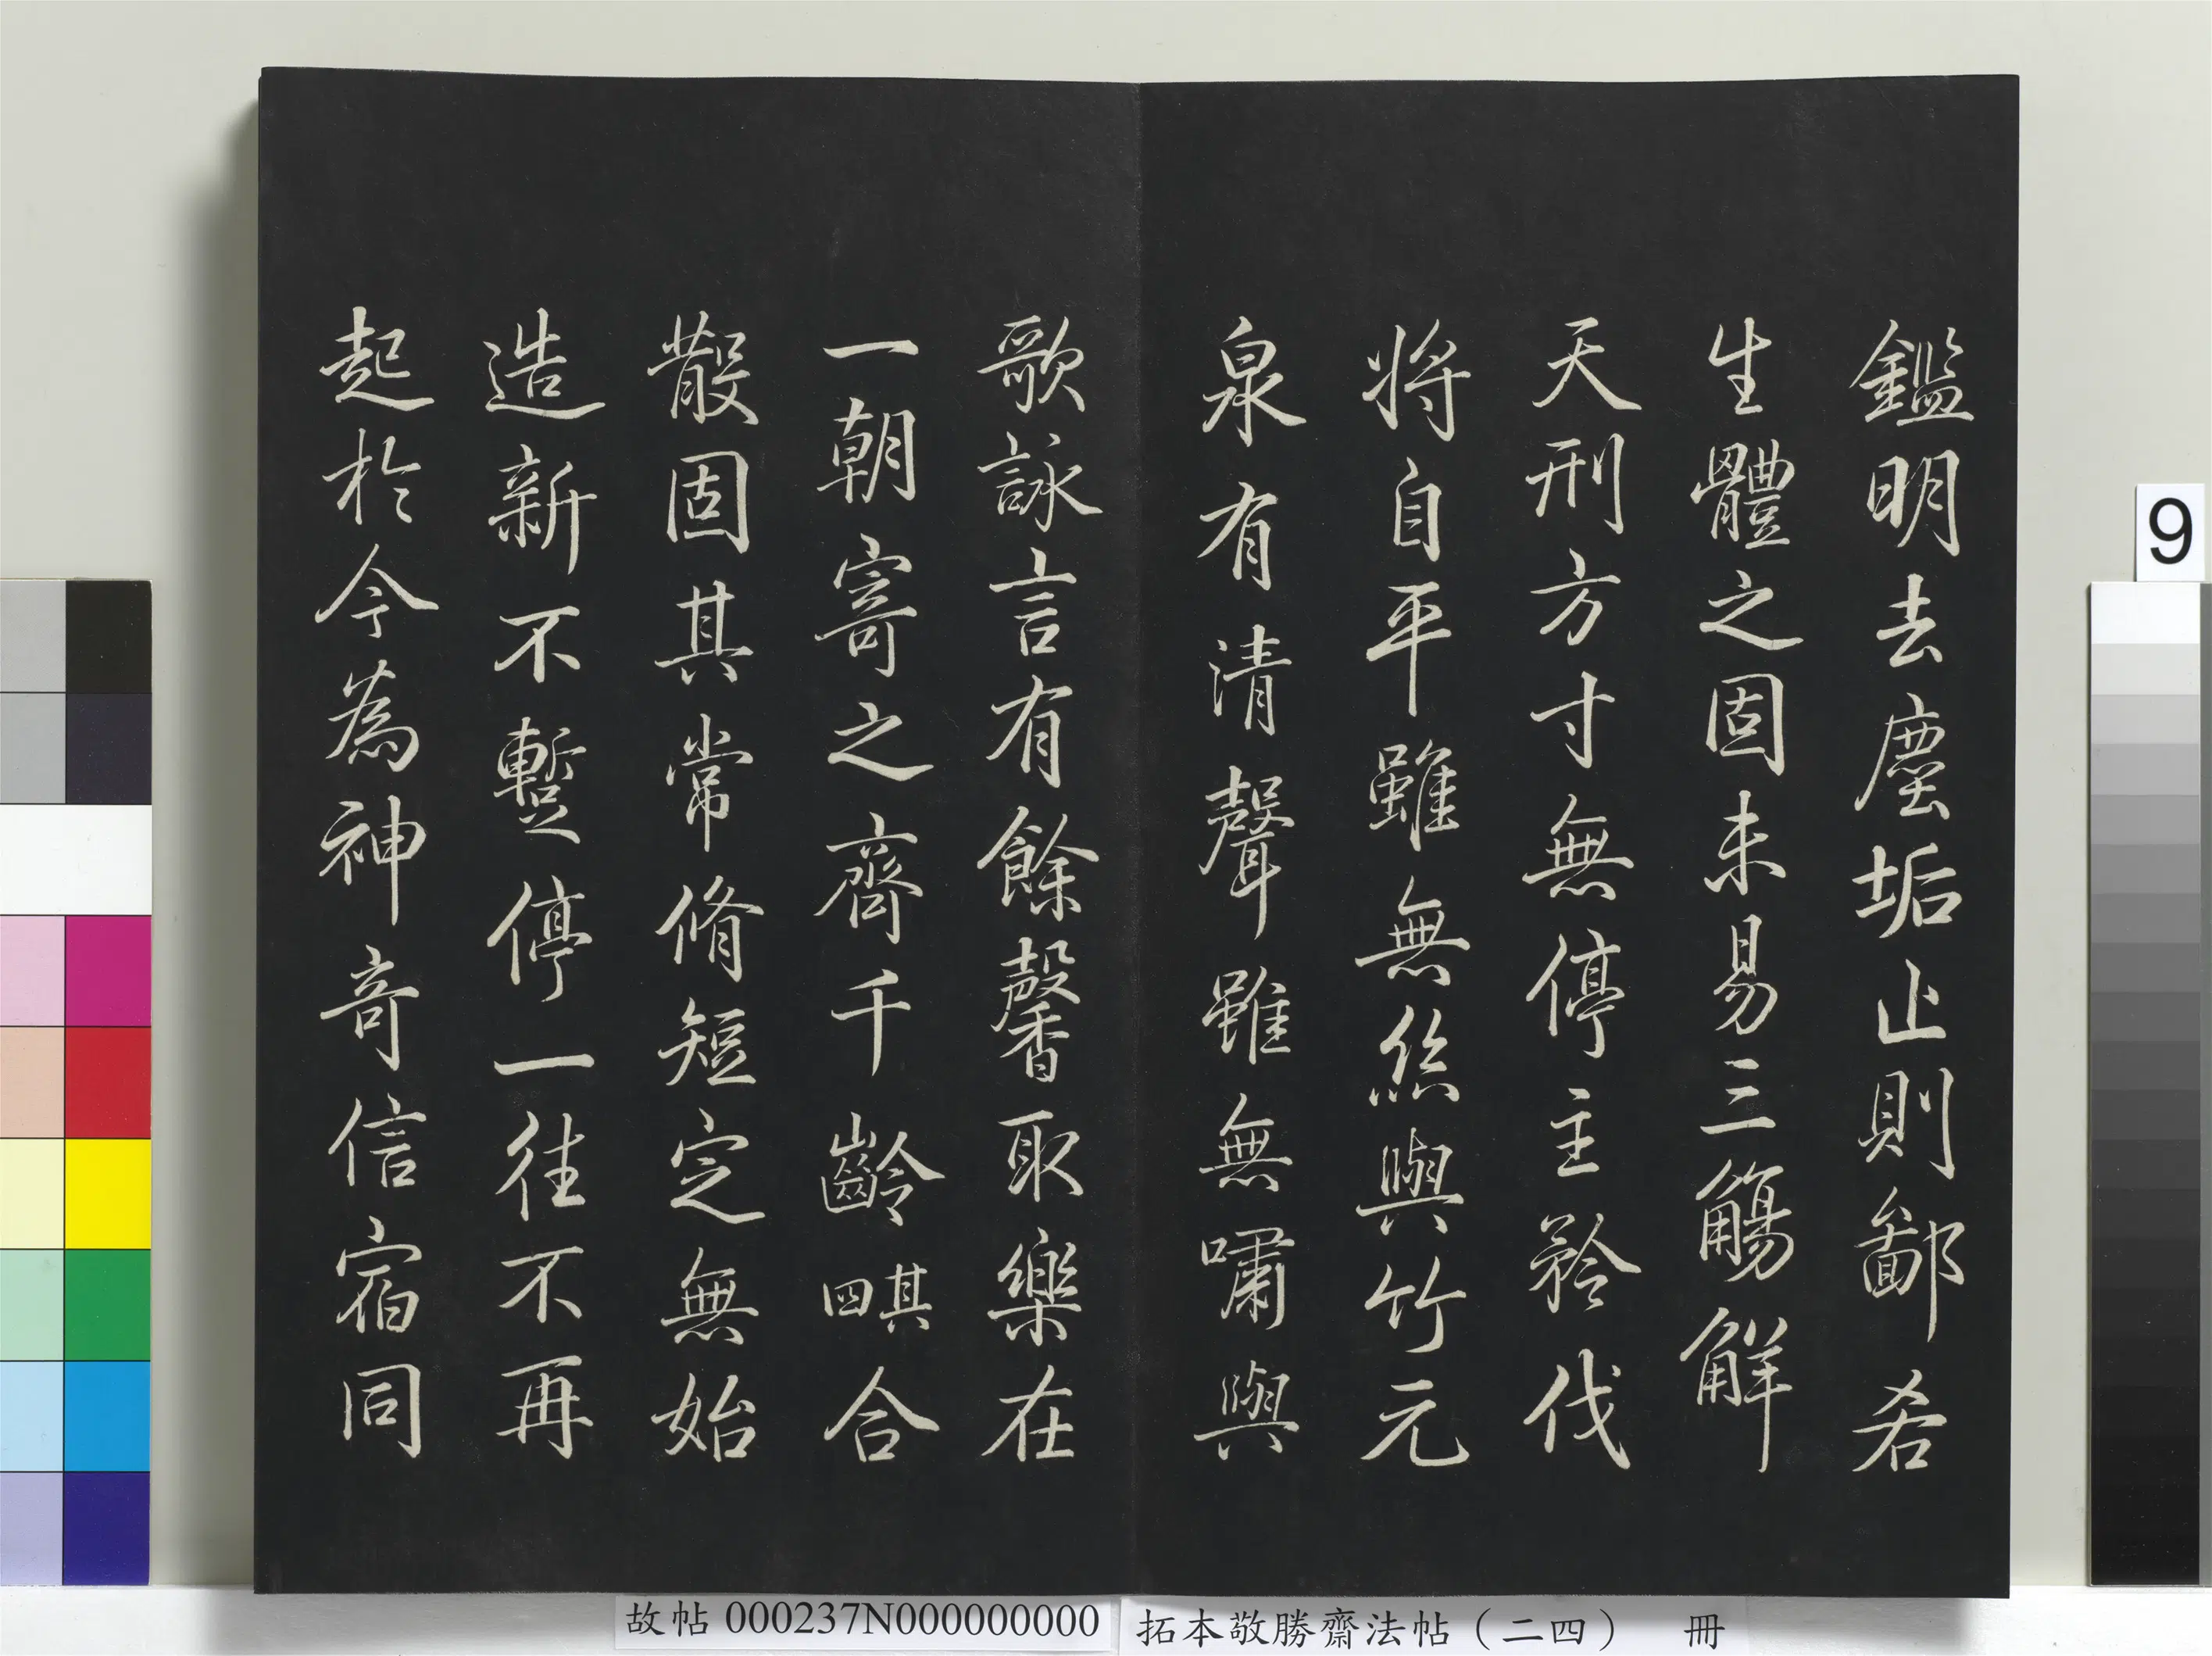 鑑明去塵垢止則鄙希
生體之固未易三觴解
天刑方寸無停主矜伐
將自平雖無絲與竹元
泉有清聲雖無嘯與
歌詠言有餘馨取樂在
一朝寄之齊千齡 四其 合
散固其常脩短定無始
造新不暫停一往不再
起於今為神奇信宿同
9
故帖000237N000000000
拓本敬勝齋法帖（二四） 冊